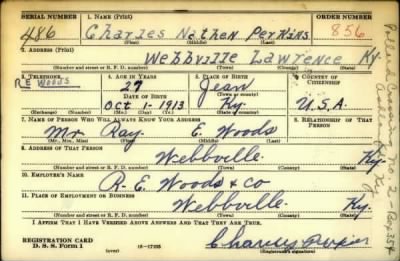 SERIAL NUMBER 1. NAME (Print) ORDER NUMBER
486 Charles Nathen Perkins 856
(First) (Middle) (Last)
2. ADDRESS (Print)
Webbville Lawrence Ky.
(Number and street or R. F. D. number) (Town) (County) (State)
3. TELEPHONE 4. AGE IN YEARS 5. PLACE OF BIRTH 6. COUNTRY OF CITIZENSHIP
R E Woods 27 Jean
DATE OF BIRTH (Town or county)
Oct 1- 1913 Ky. U.S.A.
(Exchange) (Number) (Mo.) (Day) (Yr.) (State or country)
7. NAME OF PERSON WHO WILL ALWAYS KNOW YOUR ADDRESS 8. RELATIONSHIP OF THAT PERSON
Mr. Ray. E. Woods
(Mr., Mrs., Miss) (First) (Middle) (Last)
9. ADDRESS OF THAT PERSON
Webbville. Ky.
(Number and street or R. F. D. number) (Town) (County) (State)
10. EMPLOYER'S NAME
R. E. Woods & Co
11. PLACE OF EMPLOYMENT OR BUSINESS
Webbville. Ky.
(Number and street or R. F. D. number) (Town) (County) (State)
I AFFIRM THAT I HAVE VERIFIED ABOVE ANSWERS AND THAT THEY ARE TRUE.
REGISTRATION CARD
D. S. S. Form 1 (over) 16-17105 Charles
(Registrant's signature)
No. 2 - Box 354